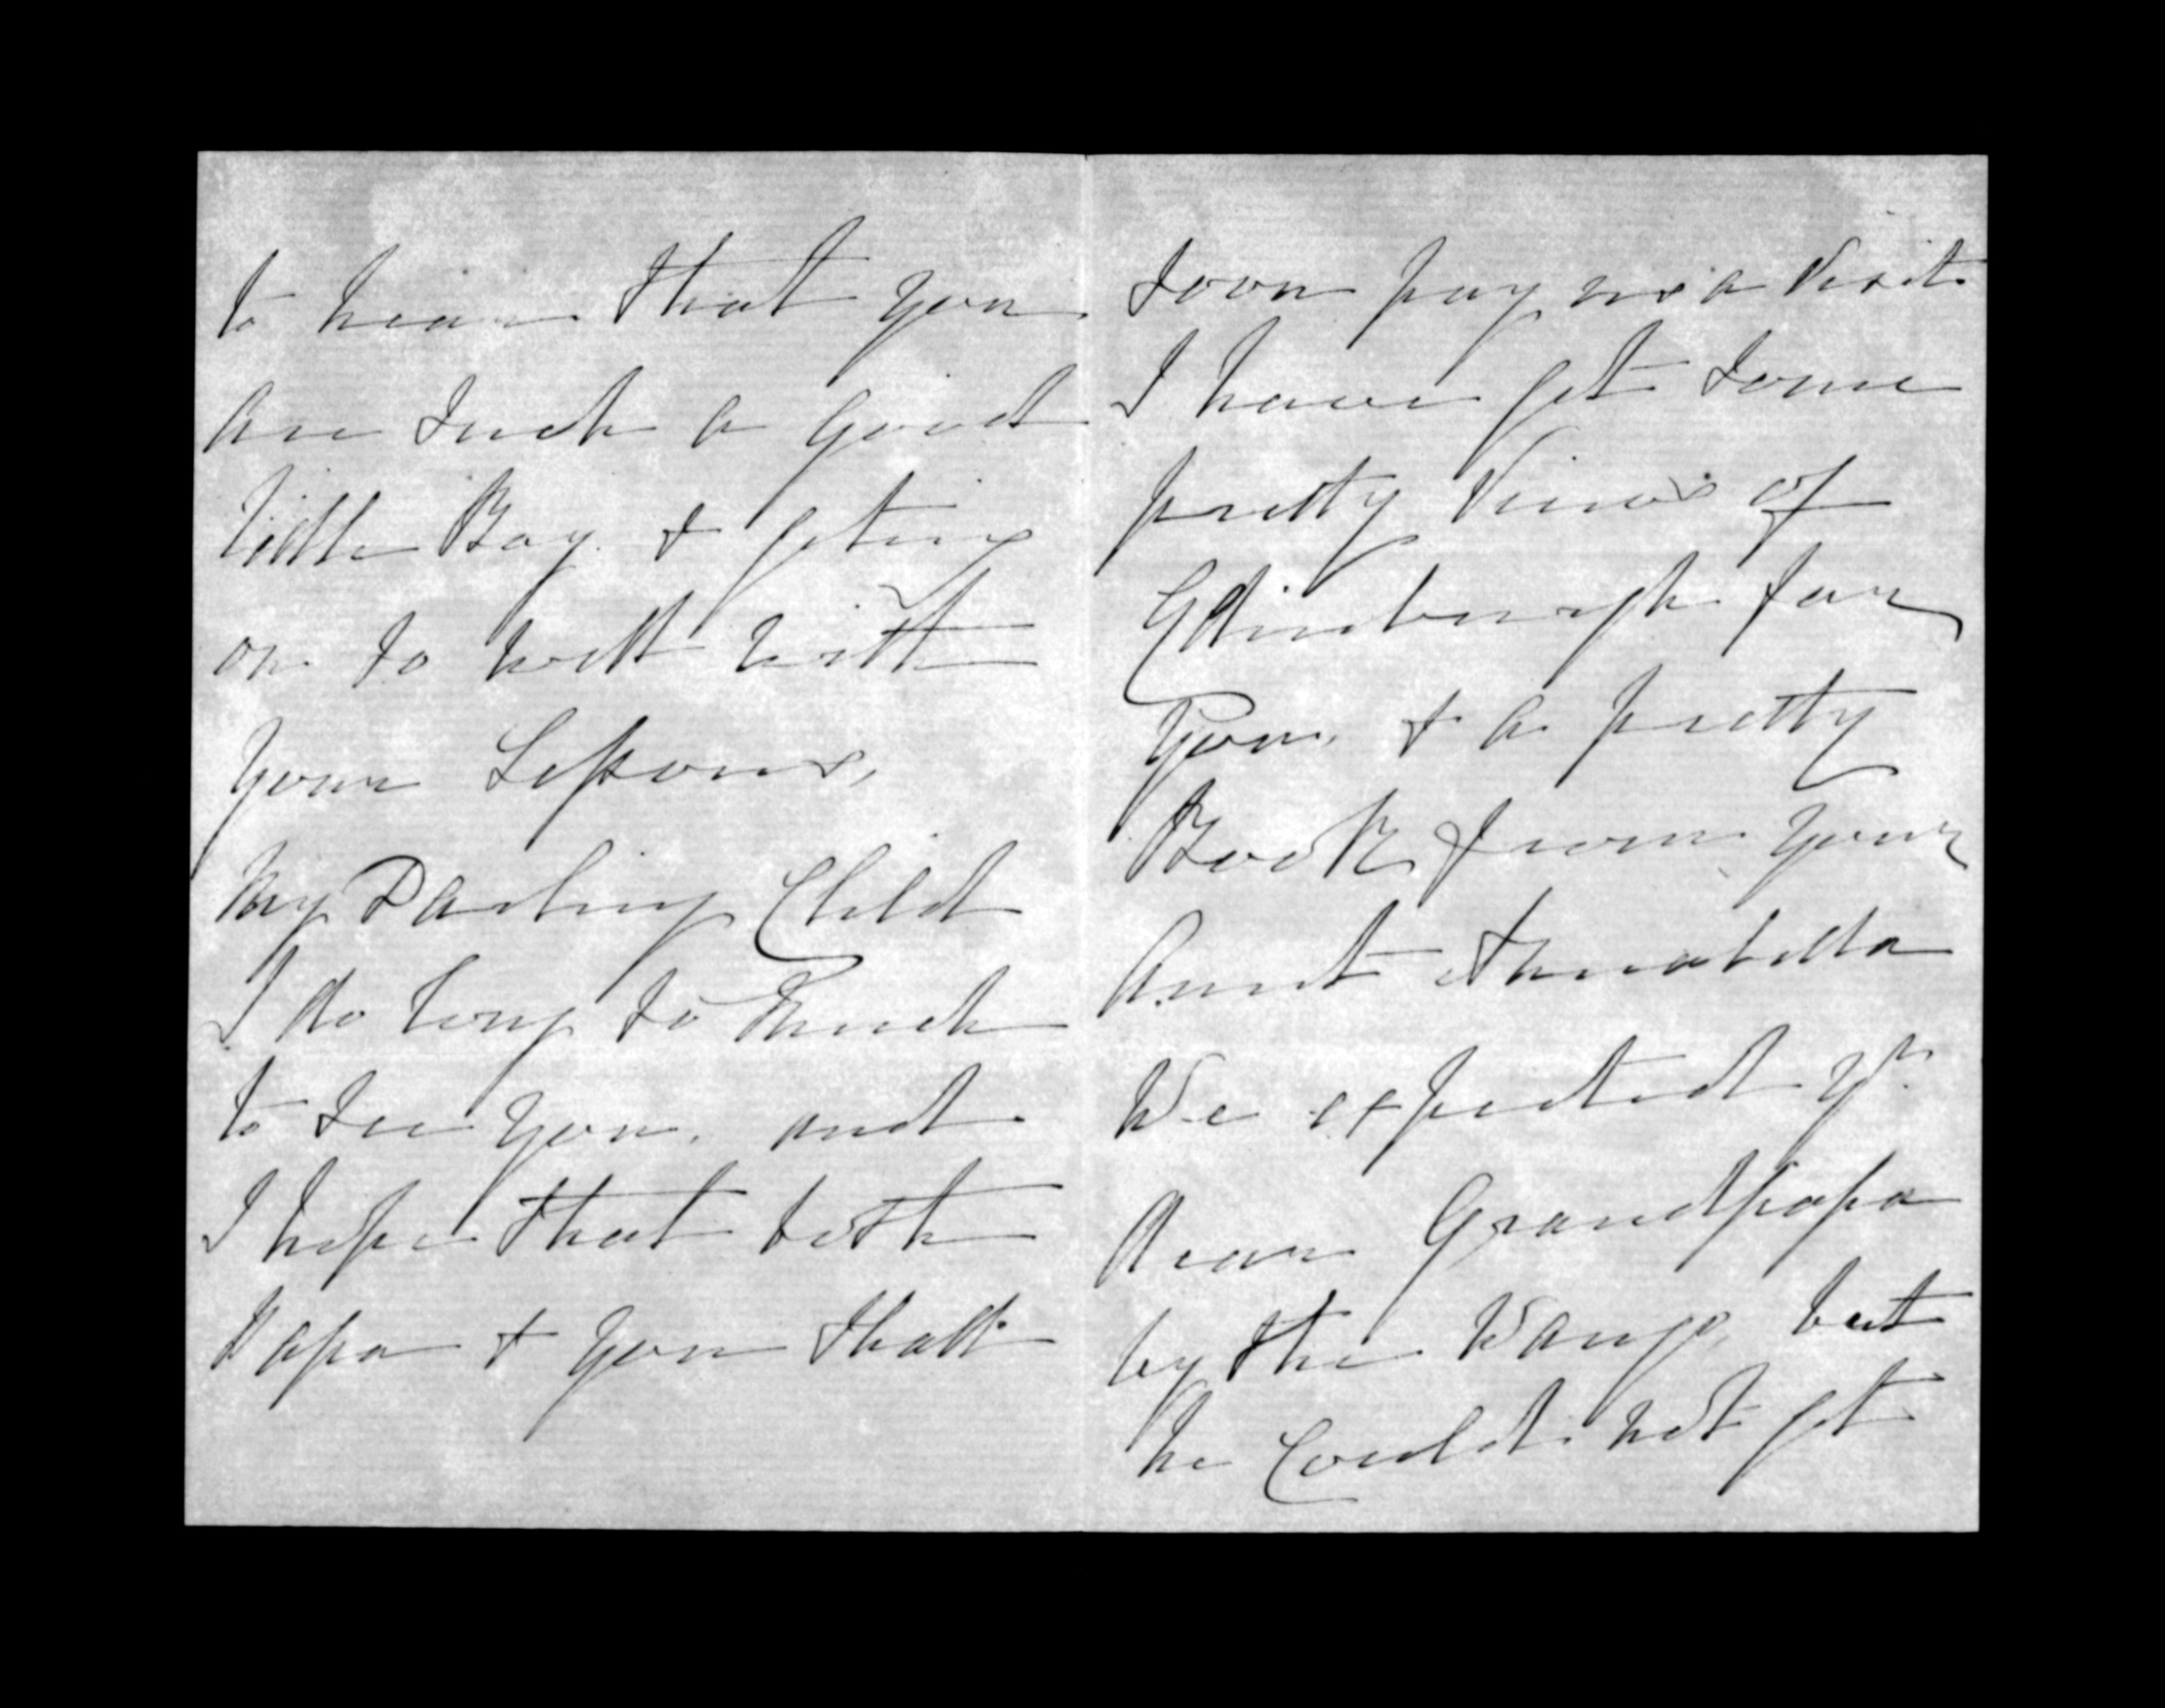 to hear that you
are such a good
little Boy & geting
on so well with
your Lessons,
My Darling Child
I do long so much
to see you, and
I hope that both
Papa & you shall
soon pay us a visit
I have got some
pretty views of
Edinburgh for
you, & a pretty
Book from your
Aunt Annabella
We expected yr.
dear Grandpapa
by the Wanga, but
he could not get